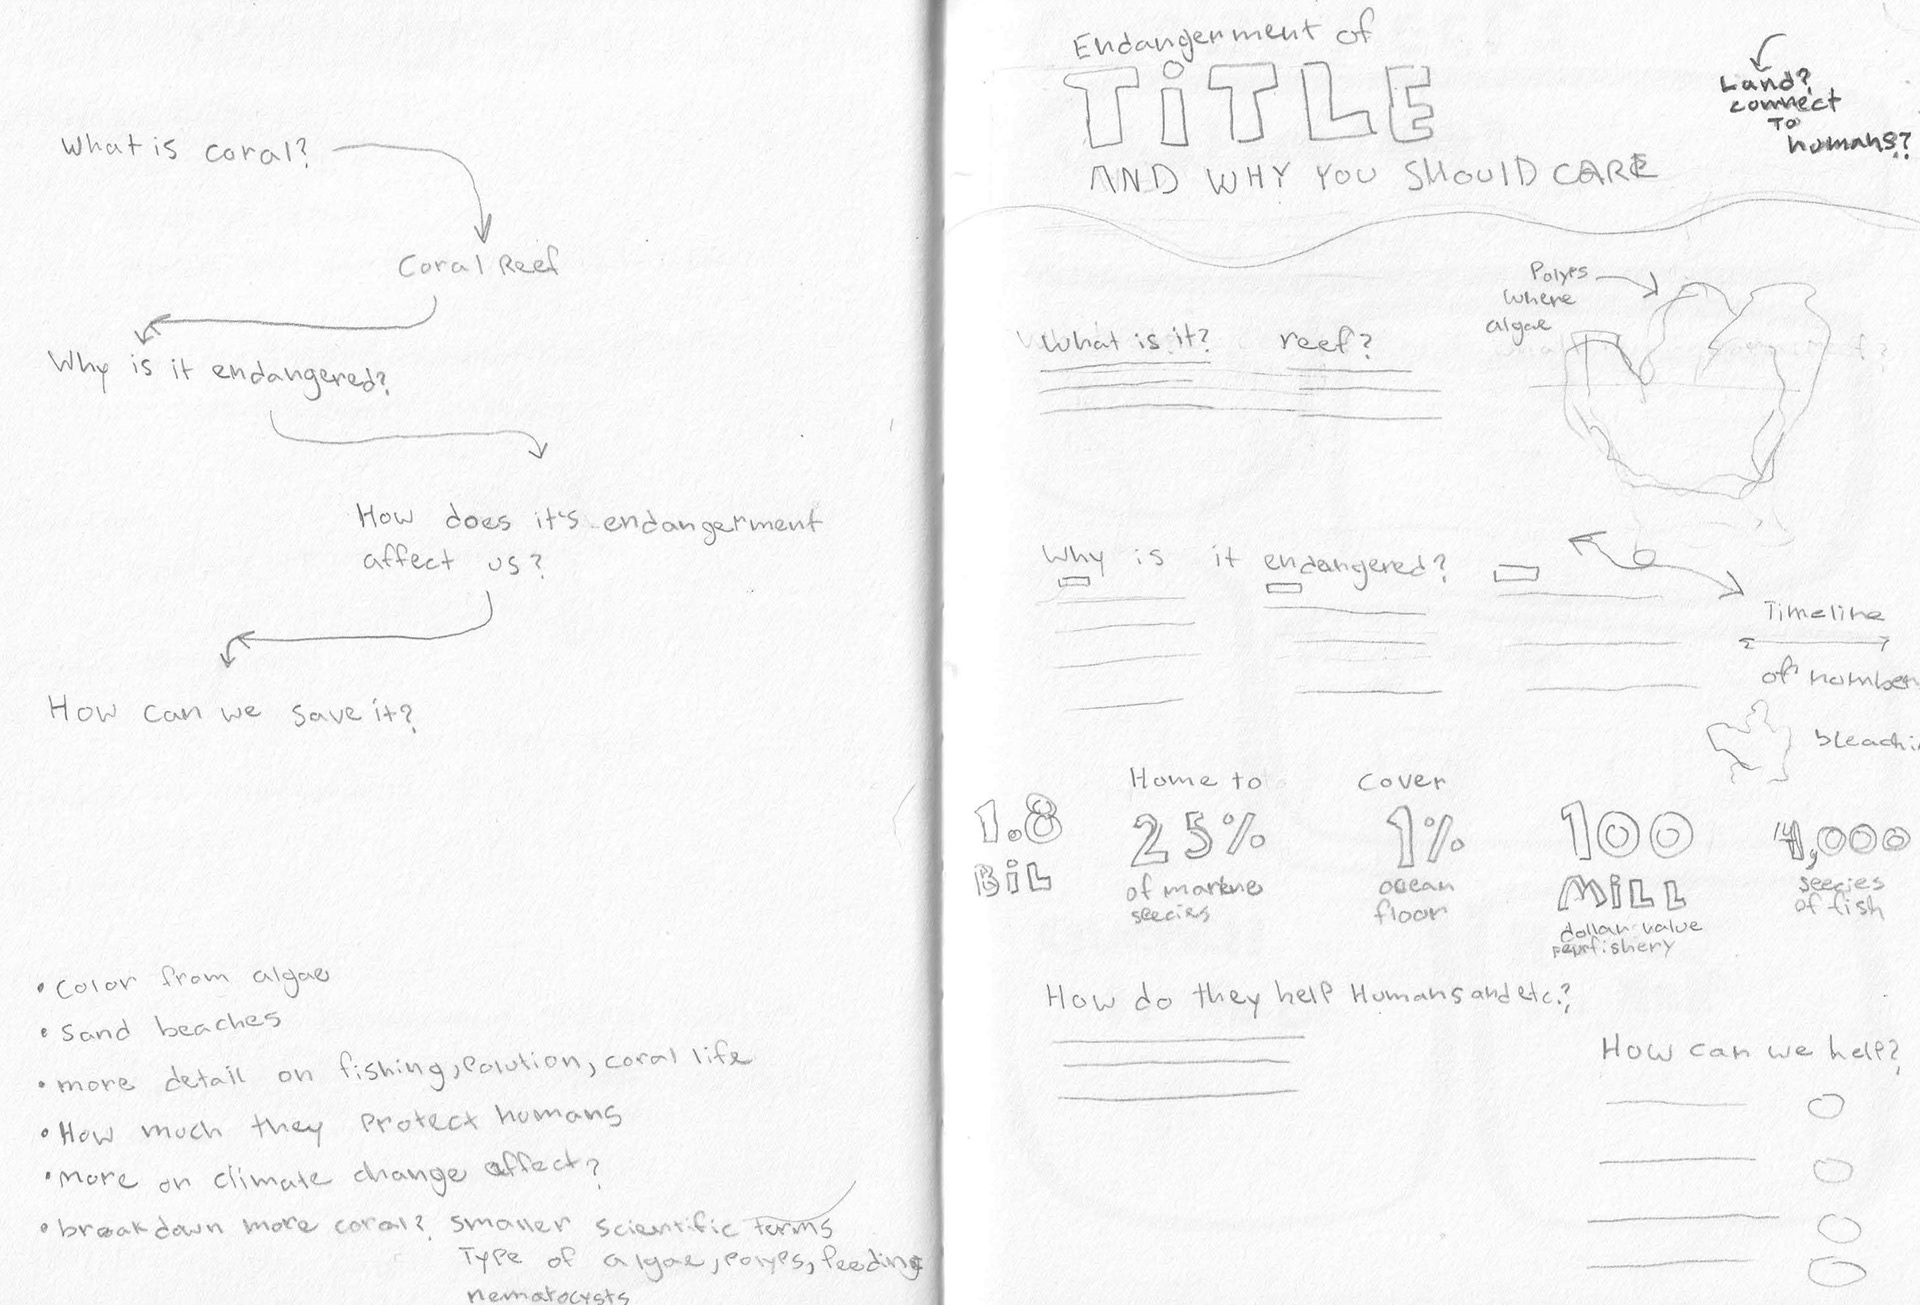 What is coral?
Coral Reef
Why is it endangered?
How does it's endangerment
affect us?
How can we save it?
• Color from algae
• Sand beaches
• more detail on fishing, polution, coral life
• How much they protect humans
• More on climate change affect?
• breakdown more coral? smaller scientific terms
Type of algae, polyps, feeding
nematocysts
Endangerment of
TiTLE
AND WHY YOU SHOULD CARE
Land?
connect
To
humans?
Polyps
where
algae
What is it? reef?
Why is it endangered?
Timeline
of number
bleachi
1.8
BiL
Home to
25%
of marine
species
Cover
1%
ocean
floor
100
MiLL
dollar value
per fishery
4,000
species
of fish
How do they help Humans and etc.?
How can we help?